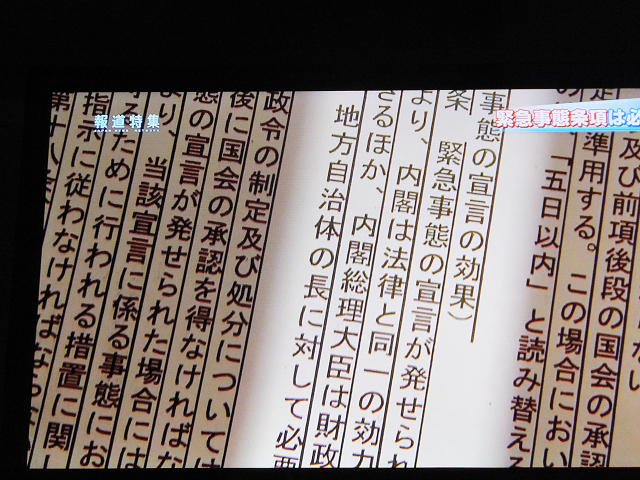 報道特集
JAPAN NEWS NETWORK
緊急事態条項は必
及び前項後段の国会の承認
準用する。この場合におい
「五日以内」と読み替える
事態の宣言の効果）
条　緊急事態の宣言が発せられ
より、内閣は法律と同一の効力
きるほか、内閣総理大臣は財政
地方自治体の長に対して必要
政令の制定及び処分については
後に国会の承認を得なければな
態の宣言が発せられた場合には
より、当該宣言に係る事態にお
するために行われる措置に関し
指示に従わなければならな